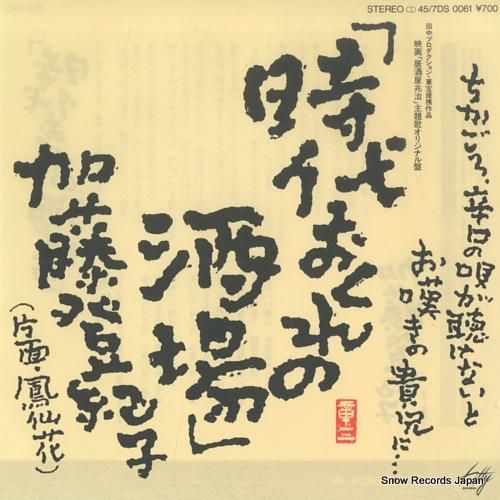 STEREO CD 45/7DS 0061 ¥700
田中プロダクション・東宝提携作品
映画「居酒屋兆治」主題歌オリジナル盤
ちかごろ、辛口の唄が聴けないと
お嘆きの貴兄に…
「時代おくれの
酒場」
加藤登紀子
(片面・鳳仙花)
Kitty
RECORDS
Snow Records Japan